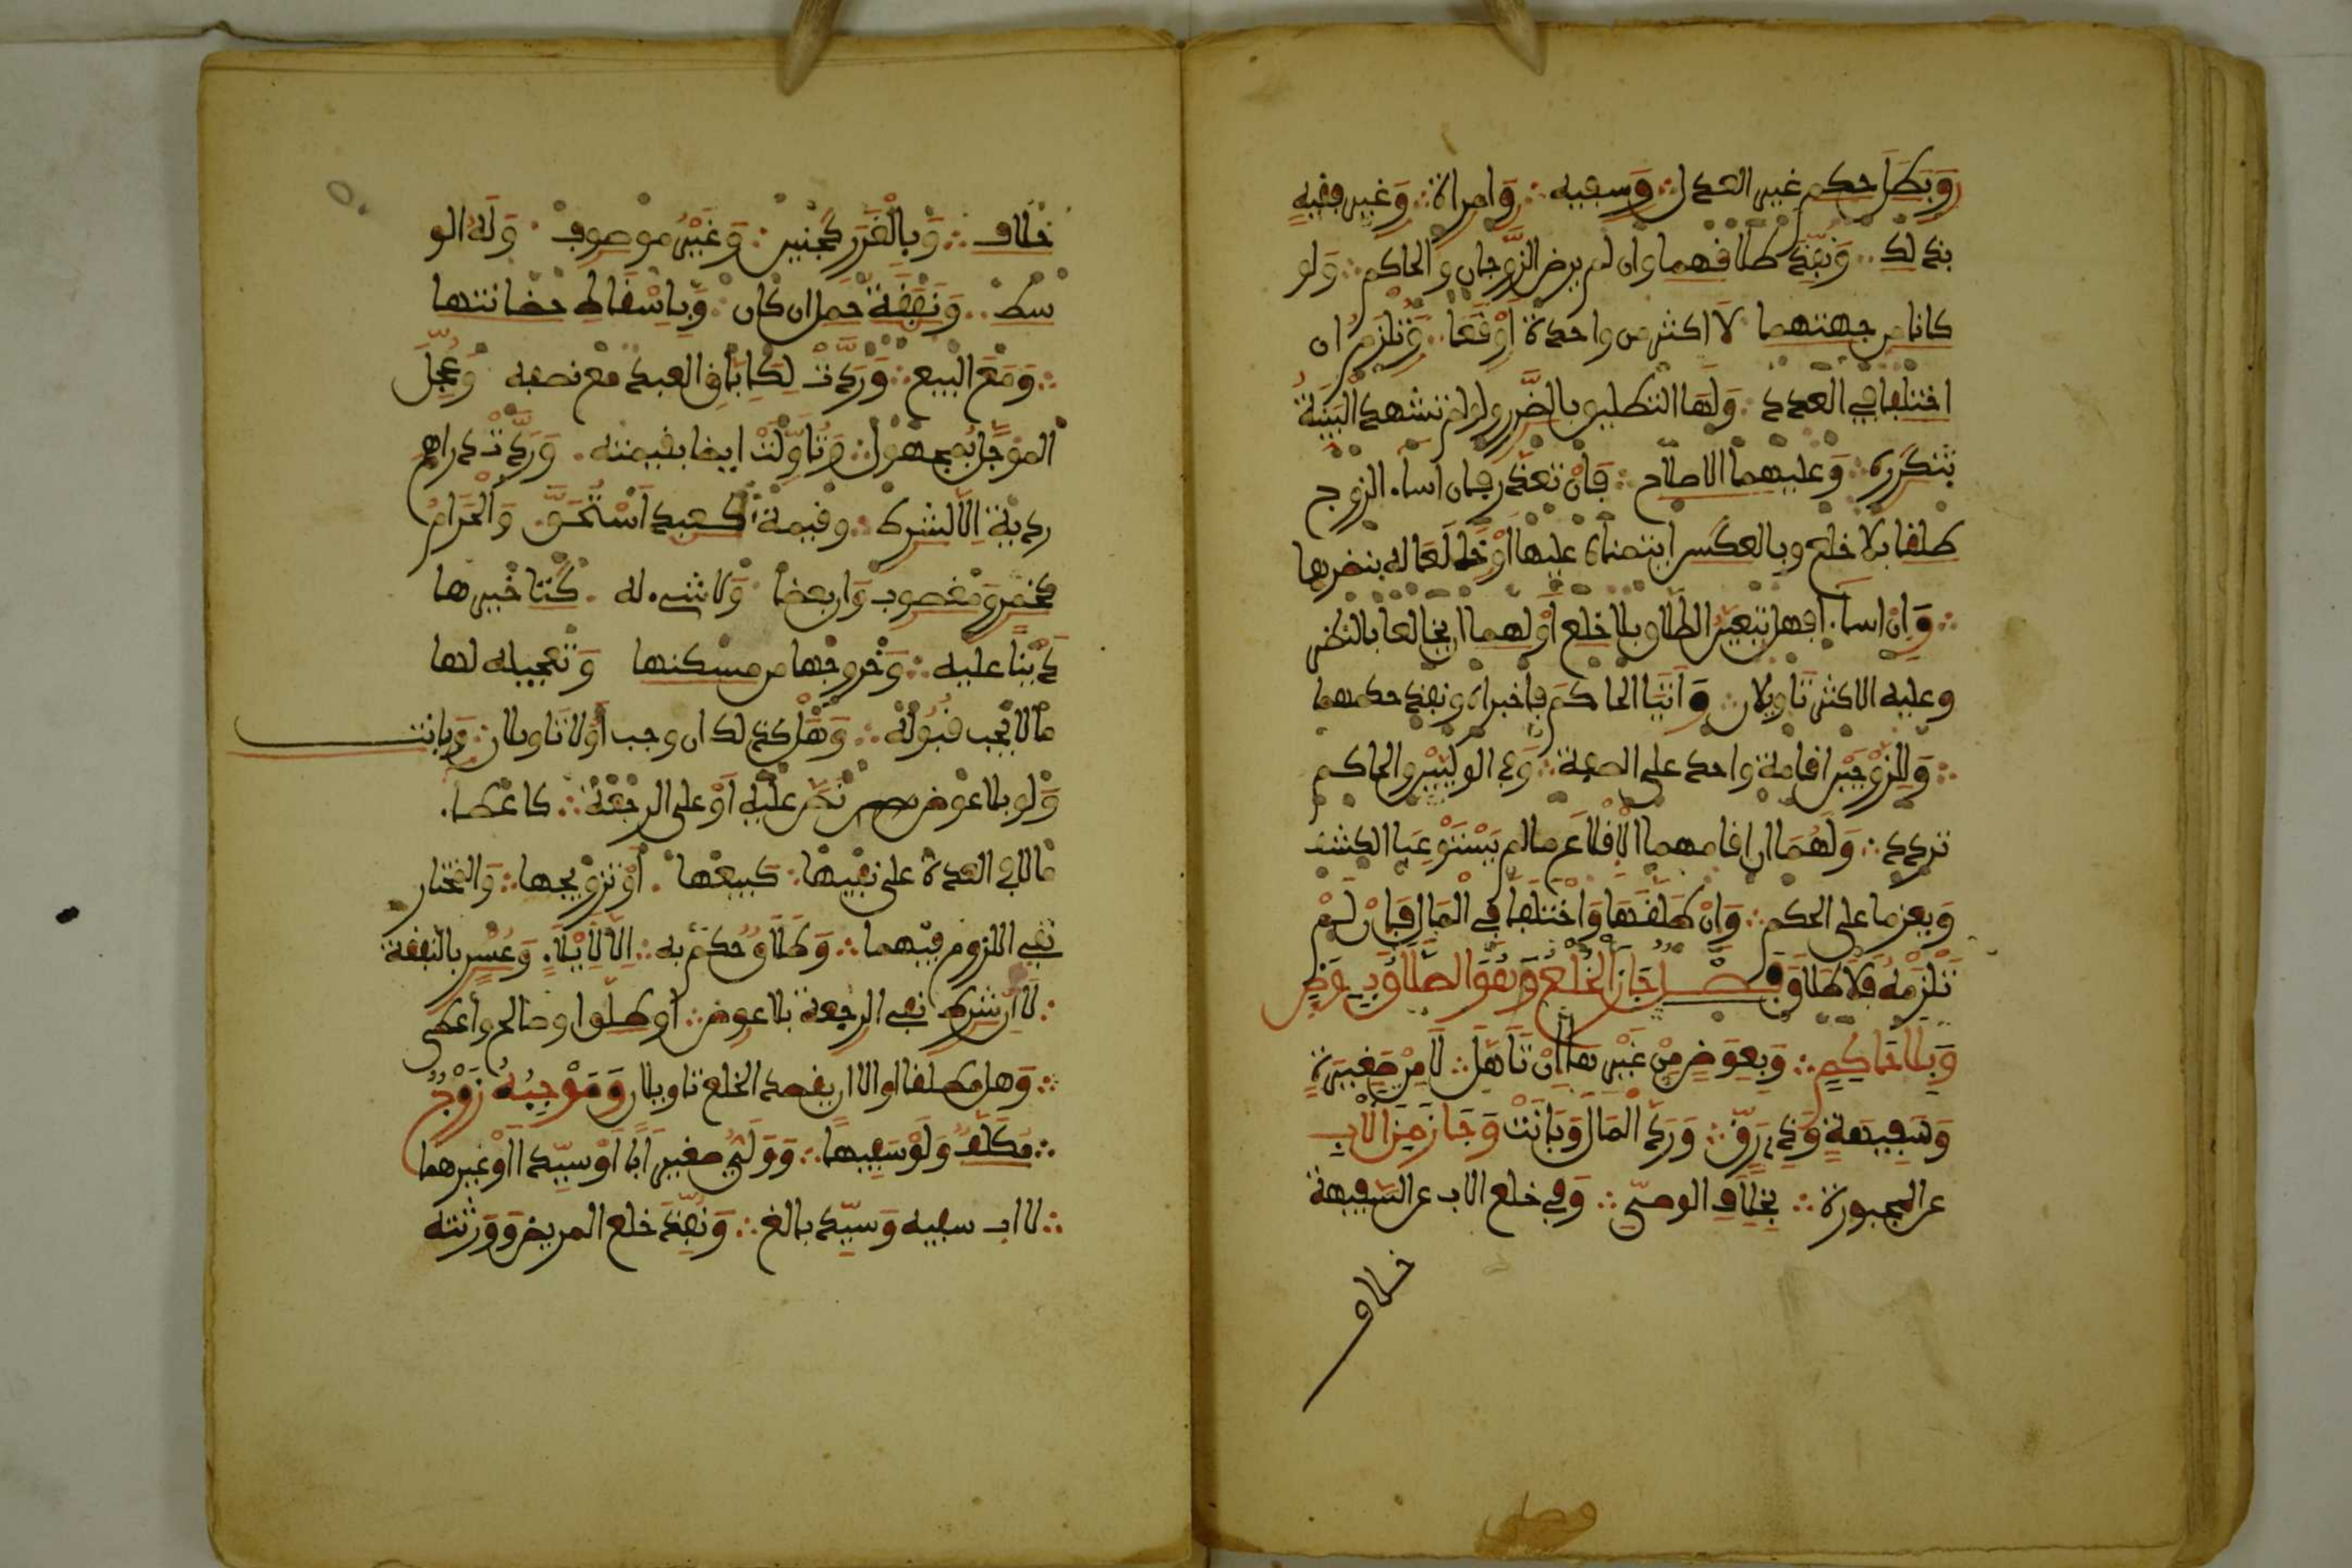 وَبَطَلَ حكم غير العدل وَسفيه وَامراة وَغير فقيه
بذلك وَنفذ طلاقهما وان لم يرض الزوجان والحاكم وَلو
كانا من جهتهما لا اكثر من واحدة أوقعا وَتلزم ان
اختلفا في العدد وَلها التطليق بالضرر ولو لم تشهد البينة
بتكرره وَعليهما الاصلاح فإن تعذر فان اساء الزوج
طلقا بلا خلع وبالعكس ايتمناه عليها أو خالعا له بنظرهما
وَان اساءا فهل يتعين الطلاق بلا خلع أو لهما ان يخالعا بالنظر
وعليه الاكثر تاويلان وَأتيا الحاكم فاخبراه ونفذ حكمهما
وَللزوجين اقامة واحد على الصفة وَفي الوليين والحاكم
تردد وَلهما ان اقامهما الإقلاع ما لم يستوعبا الكشف
وَيعزما على الحكم وَإن طلقها واختلفا في المال فإن لم
تلتزمه فلا طلاق فصل جاز الخلع وهو الطلاق بعوض
وَبلا حاكم وَبعوض من غيرها إن تأهل لا من صغيرة
وَسفيهة وَذي رق وَرد المال وَبانت وَجاز من الاب
عن المجبورة بخلاف الوصي وَفي خلع الاب عن السفيهة
خلاف
خلاف وَبالغرر كجنين وَغير موصوف وَله الو
سط وَنفقة حمل ان كان وَباسقاط حضانتها
وَمع البيع وَردت لكإباق العبد معه نصفه وَعجل
المؤجل بمجهول وَتأولت ايضا بقيمته وَردت دراهم
ردية إلا لشرط وقيمة كعبد استحق وَالحرام
كخمر ومغصوب وان بعضا وَلا شيء له كتاخيرها
دينا عليه وَخروجها من مسكنها وَتعجيله لها
ما لا يجب قبوله وَهل كذلك ان وجب أو لا تاويلان وَبانت
وَلو بلا عوض نص عليه أو على الرجعة كاعطاء
مال في العدة على نفيها كبيعها أو تزويجها وَالمختار
نفي اللزوم فيهما وَطلاق حكم به إلا لإيلاء وَعسر بالنفقة
لا ان شرط نفي الرجعة بلا عوض او طلق او صالح وأعطى
وَهل مطلقا او الا ان يقصد الخلع تاويلان وَموجبه زوج
مكلف وَلو سفيها وَولي صغير أبا أو سيدا أو غيرهما
لا اب سفيه وَسيد بالغ وَنفذ خلع المريض وَورثته